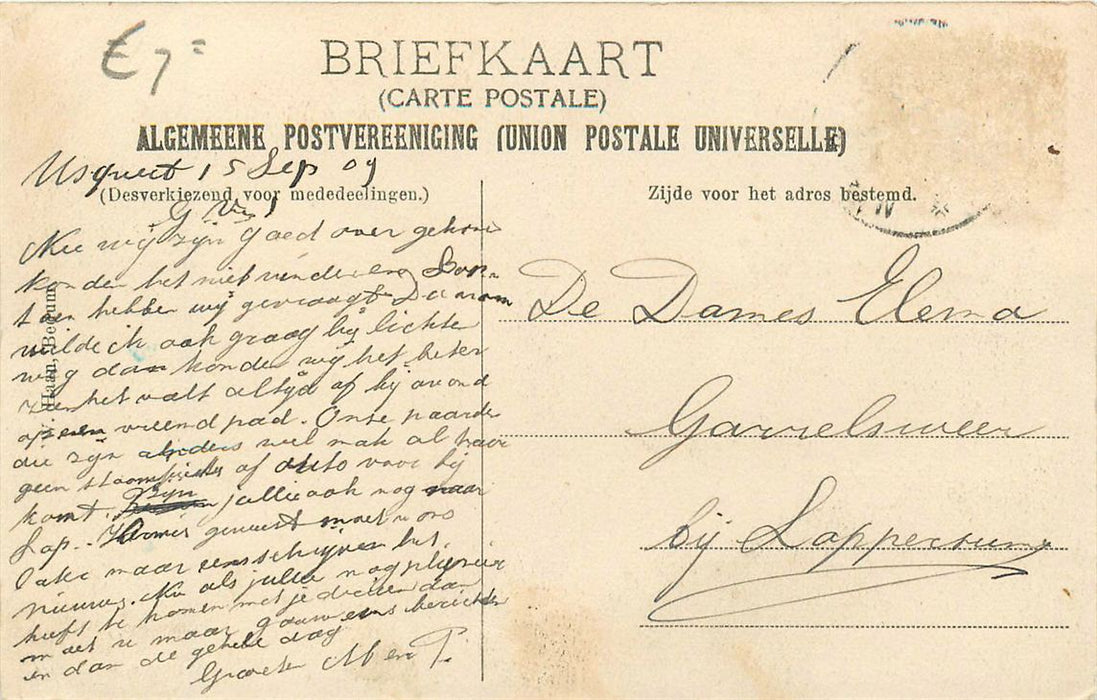 £ 7=
BRIEFKAART
(CARTE POSTALE)
ALGEMEENE POSTVEREENIGING (UNION POSTALE UNIVERSELLE)
Usquert 15 Sep 09
(Desverkiezend voor mededeelingen.)
Zijde voor het adres bestemd.
G Vr
Nu wij zijn goed over gekom
konden het niet vinden en
toen hebben wij gevraagd Daarom
wilde ik ook graag bij lichte
weg dan konden wij het beter
zien het valt altijd af bij avond
op een vreemd pad. Onze paarden
die zijn anders wel mak al
geen of auto voor bij
komt. Zijn jullie ook nog naar
Lop geweest moet u ons
maar eens schrijven het
nieuws. Nu als jullie nog plezier
heeft te komen met je drieën dan
moet u maar gauw eens berichten
en dan de geheele dag
Groeten A P.
Haan, Bedum
De Dames Elema
Garrelsweer
bij Loppersum